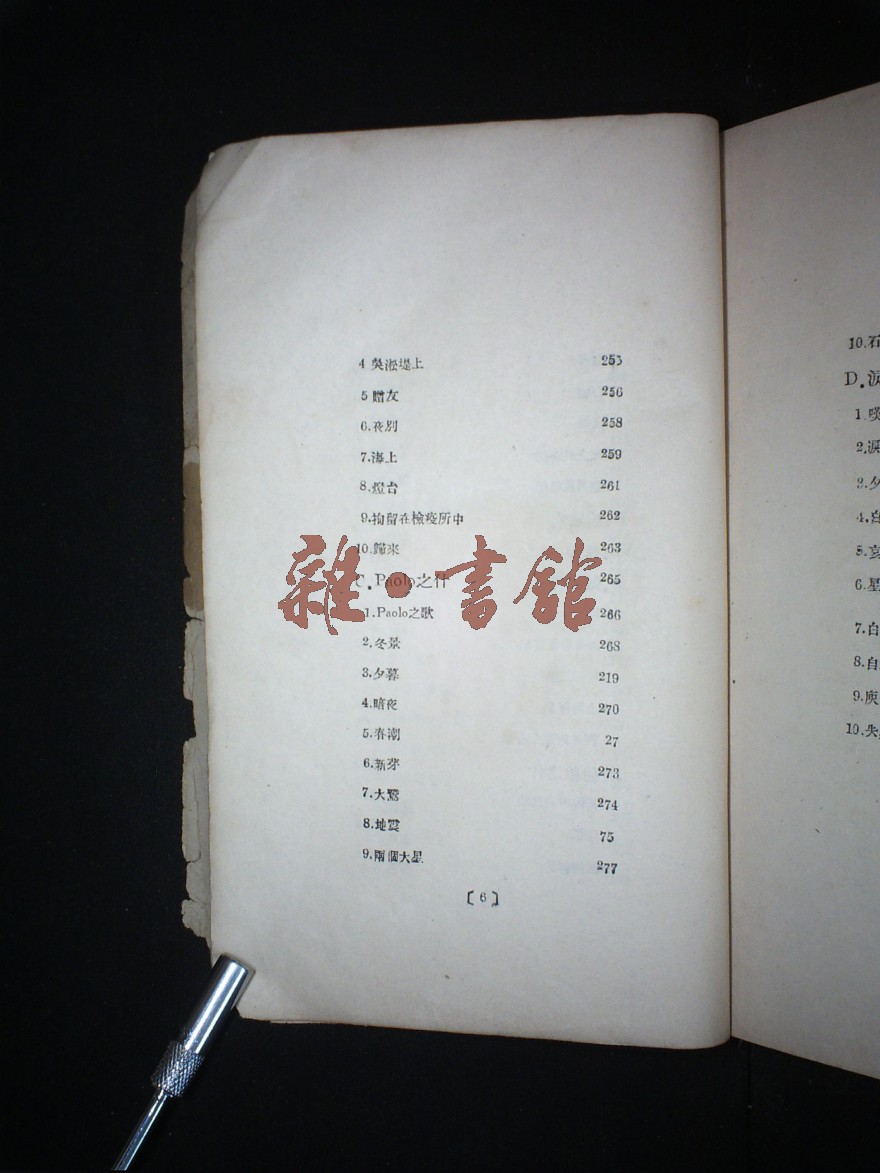 4 吳淞堤上 255
5 贈友 256
6.夜別 258
7.海上 259
8.燈台 261
9.拘留在檢疫所中 262
10.歸來 263
C.Paolo之什 265
1.Paolo之歌 266
2.冬景 268
3.夕暮 219
4.暗夜 270
5.春潮 27
6.新芽 273
7.大鷲 274
8.地震 75
9.兩個大星 277
〔6〕
雜·書館
10.石
D.淚
1.
2.淚
3.夕
4.
5.哀
6.星
7.白
8.自
9.庚
10.失